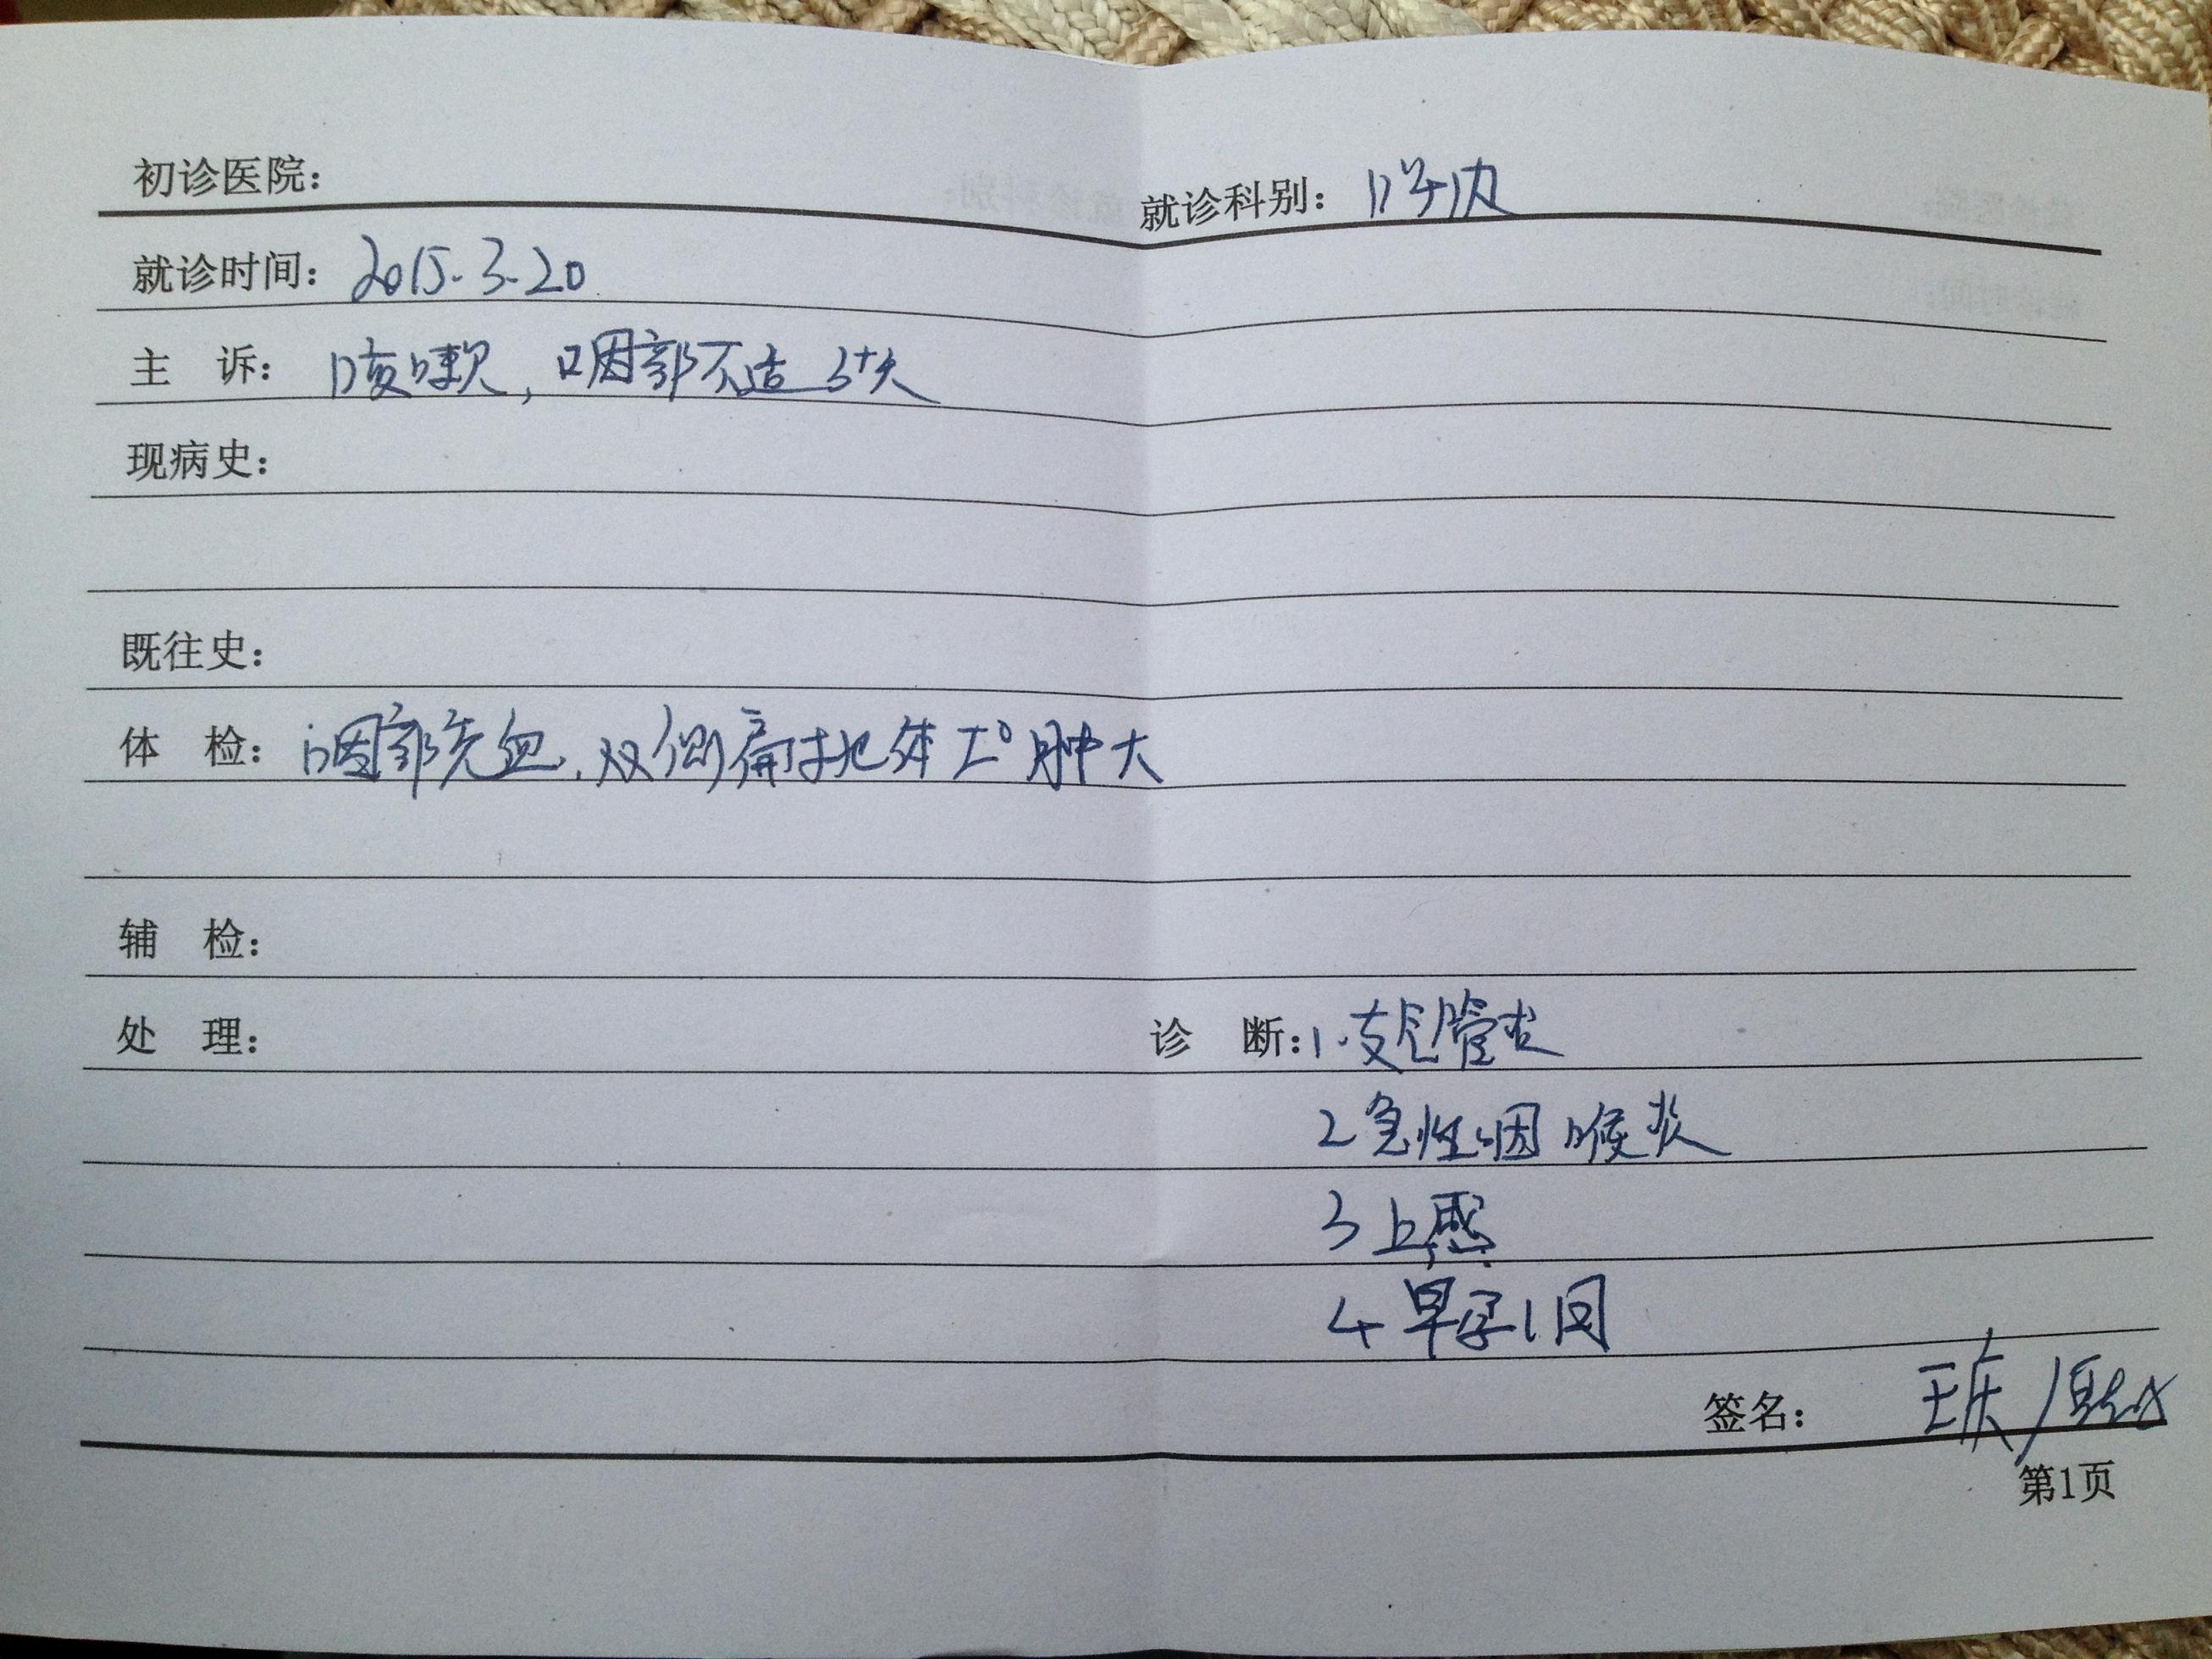 初诊医院： 就诊科别：呼内
就诊时间：2015.3.20
主 诉：咳嗽，咽部不适3+天
现病史：
既往史：
体 检：咽部充血，双侧扁桃体I°肿大
辅 检：
处 理： 诊 断：1.支气管炎
2急性咽喉炎
3上感
4早孕1周
签名：
第1页